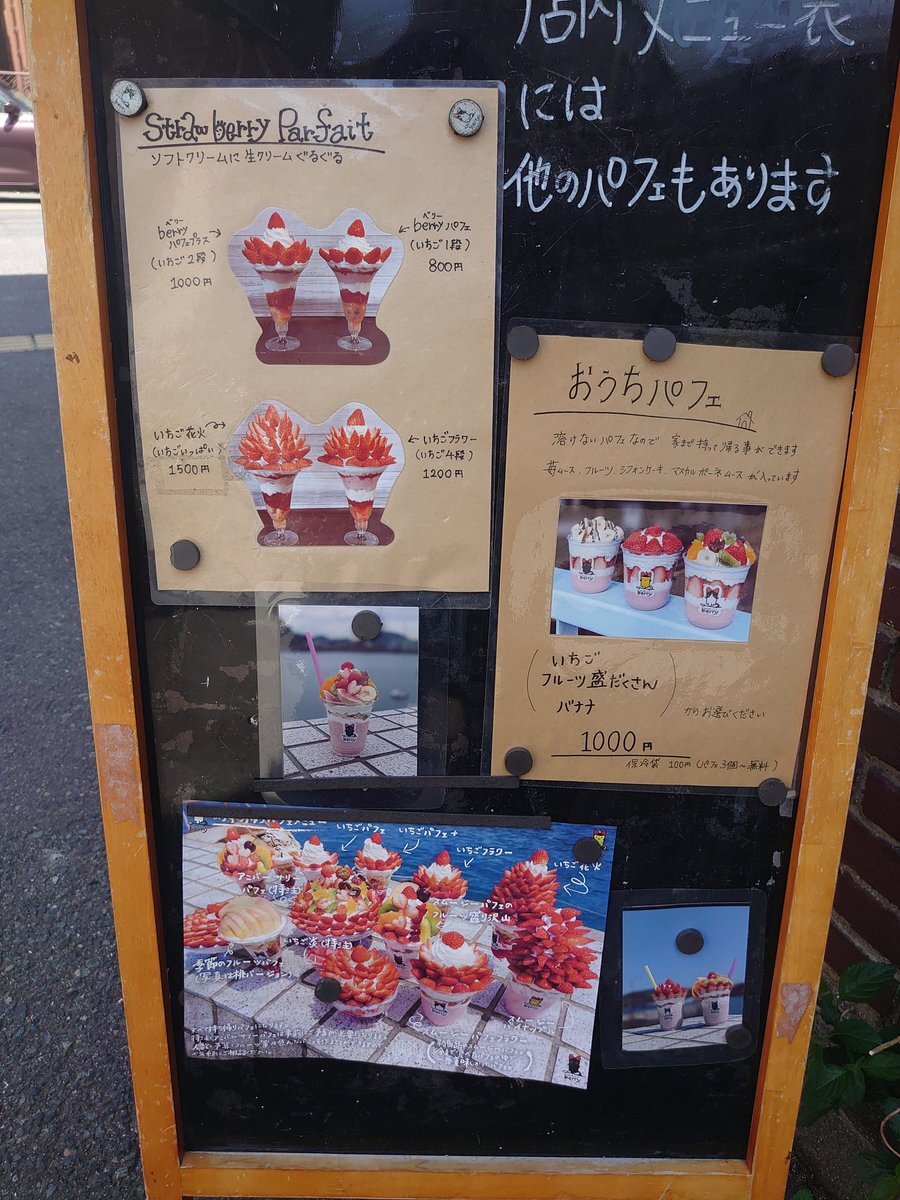 店内メニュー表
には
他のパフェもあります
Strawberry Parfait
ソフトクリームに生クリームぐるぐる
ベリー
berry
パフェプラス
(いちご2段)
1000円
ベリー
berryパフェ
(いちご1段)
800円
いちご花火
(いちごいっぱい)
1500円
いちごフラワー
(いちご4段)
1200円
おうちパフェ
溶けないパフェなので 家まで持って帰る事ができます
苺ムース、フルーツ、シフォンケーキ、マスカルポーネムースが入っています
berry
berry
いちご
フルーツ盛だくさん
バナナ
からお選びください
1000円
保冷袋 100円(パフェ3個〜無料)
いちごパフェ
いちごパフェ+
いちごフラワー
いちご花火
アニバーサリー
パフェ(特注)
スムージーパフェの
フルーツ盛り沢山
いちご炎(特注)
季節のフルーツパフェ
(写真は桃バージョン)
berry